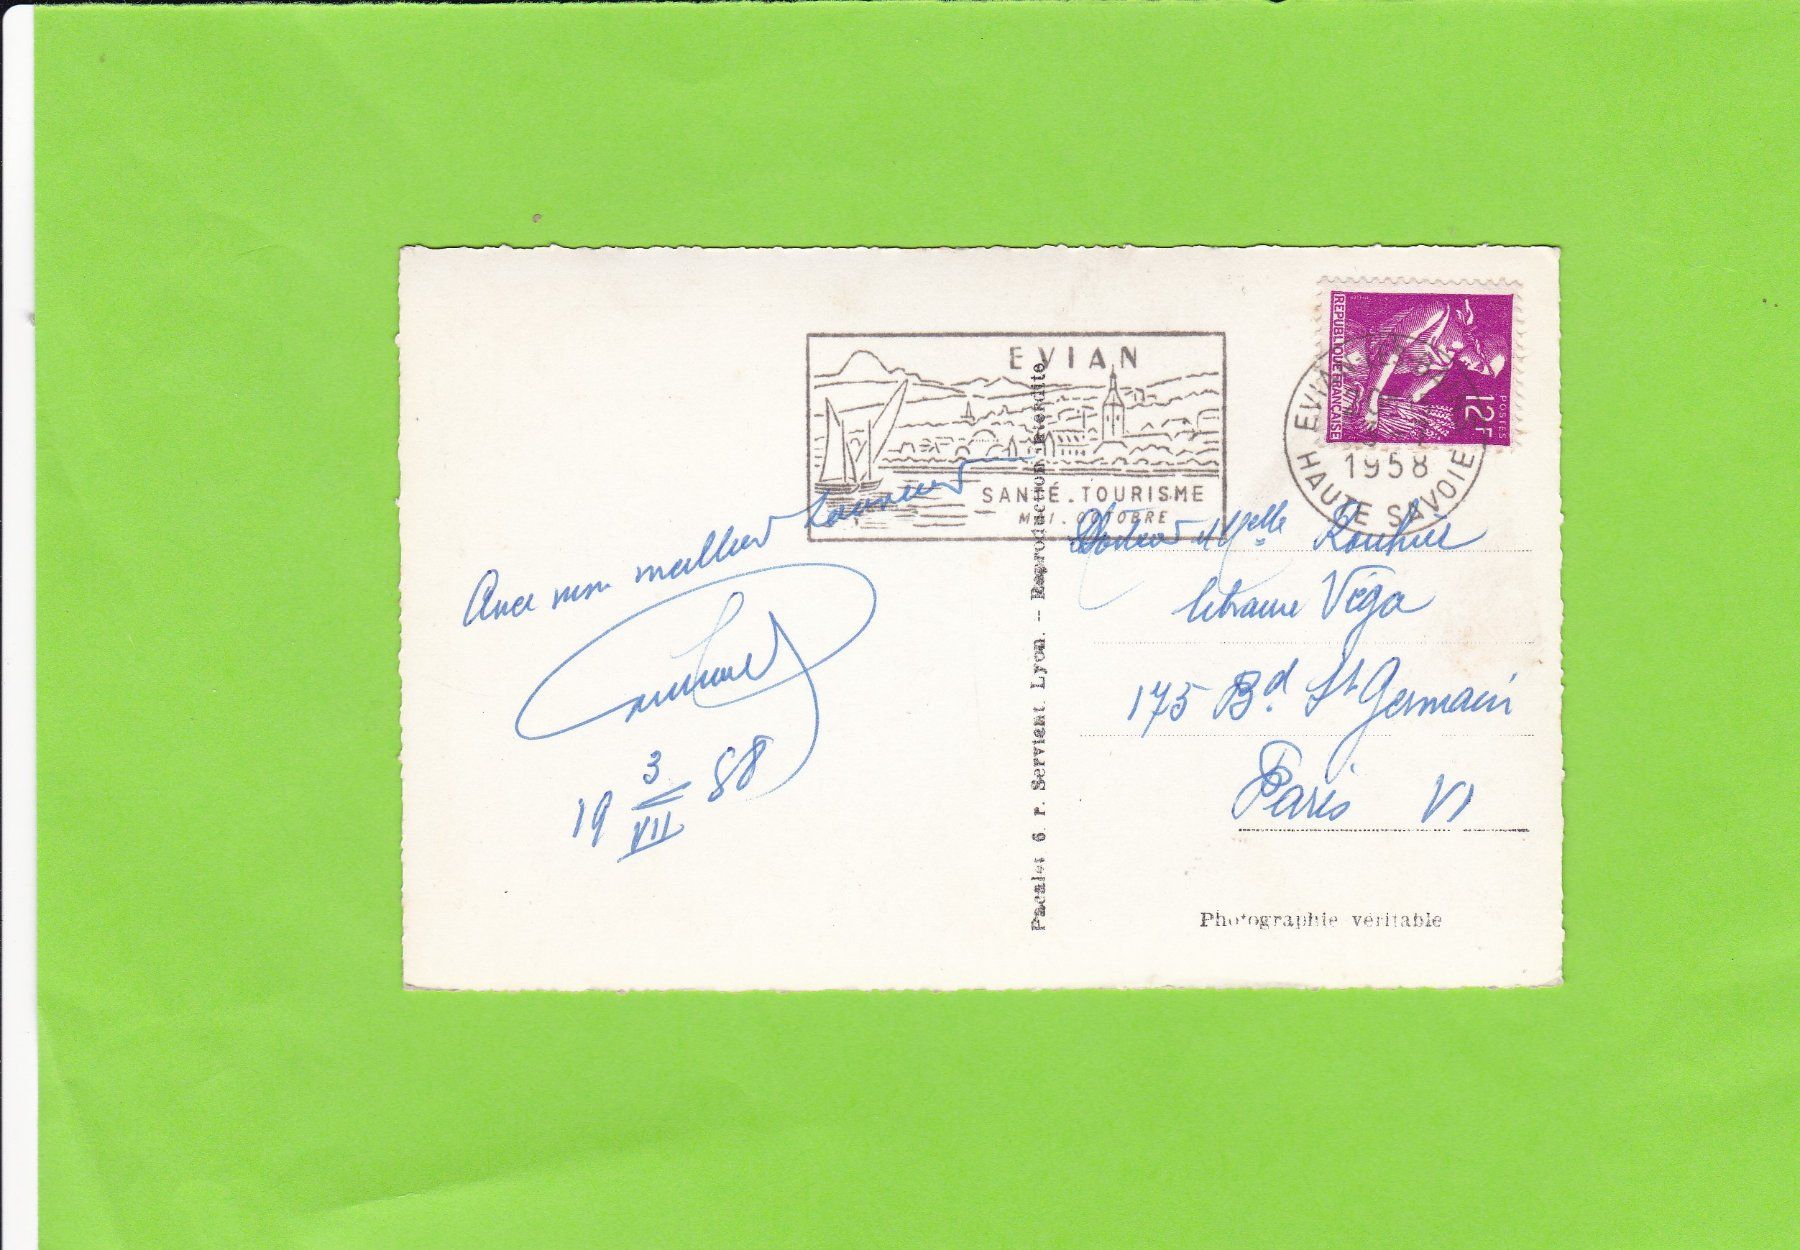 EVIAN
SANTÉ . TOURISME
MAI . OCTOBRE
REPUBLIQUE FRANÇAISE
POSTES
12F
EVIAN
1958
HAUTE SAVOIE
Avec mon meilleur souvenir
19 3/VII 58
Pacalet 6. r. Servient. Lyon. -- Reproduction interdite
Docteur Melle Rouhier
librairie Véga
175 Bd. St Germain
Paris VI
Photographie véritable